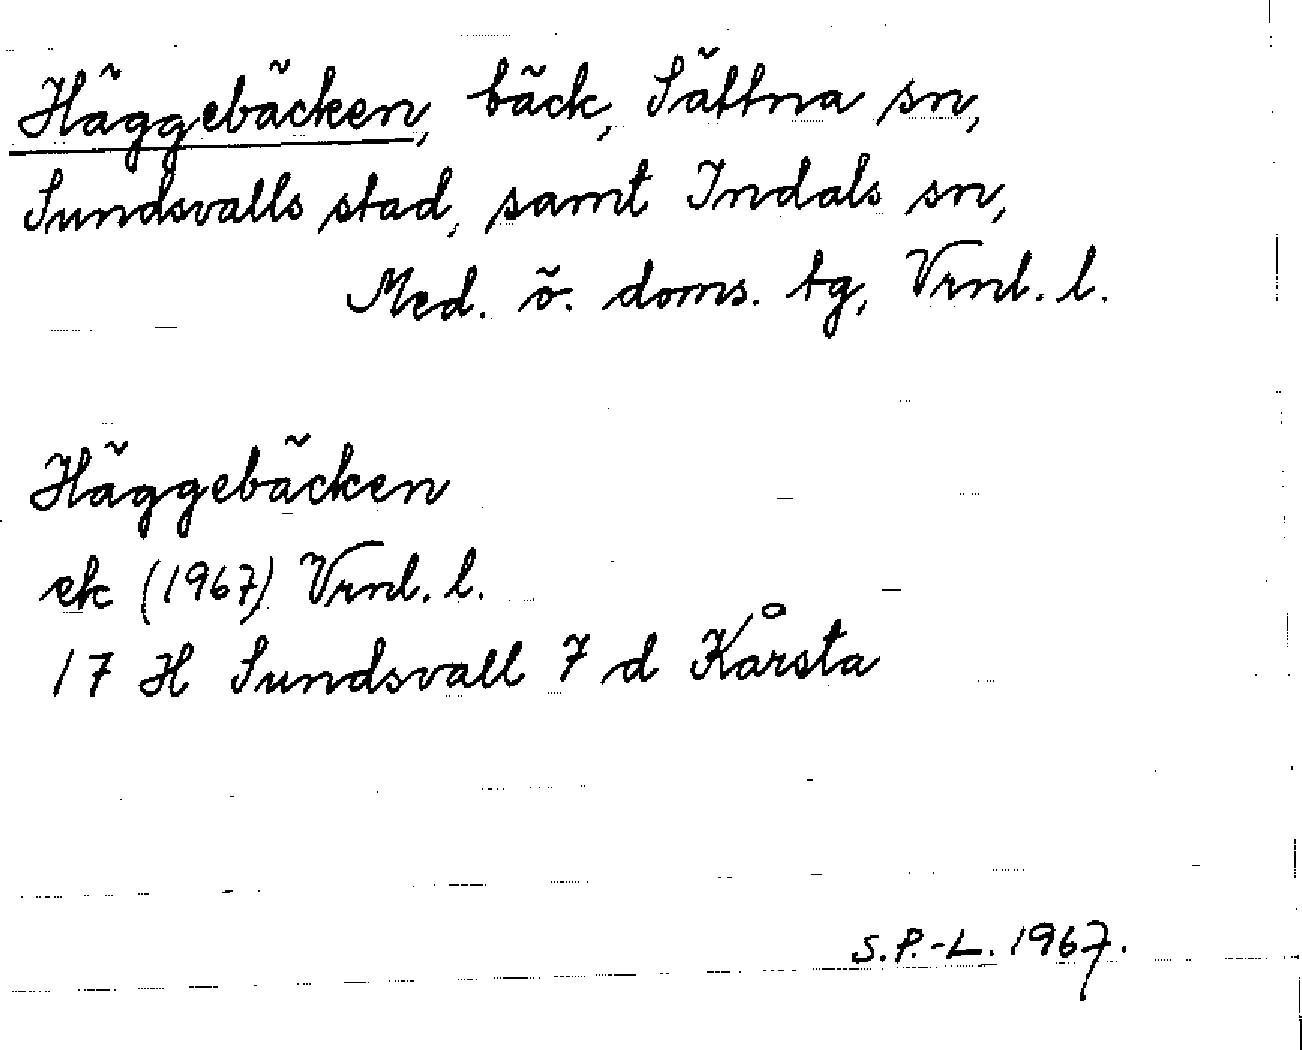 Häggebäcken, bäck, Sättna sn,
Sundsvalls stad, samt Indals sn,
Med. ö. doms. tg, Vrnl. l.
Häggebäcken
ek (1967) Vrnl. l.
17 H Sundsvall 7 d Kårsta
S.P.-L. 1967.